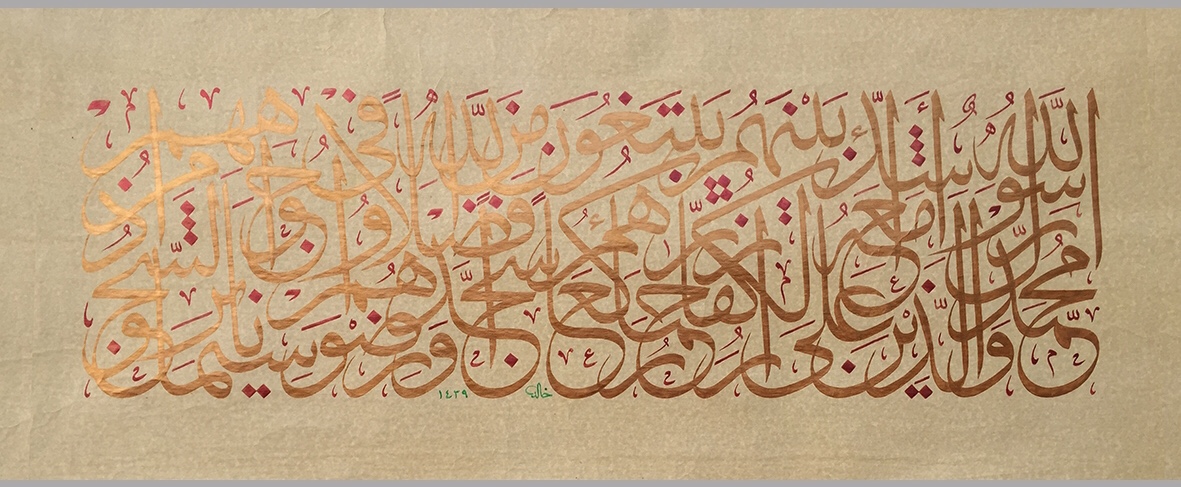 محمد رسول الله والذين معه أشداء على الكفار رحماء بينهم تراهم ركعا سجدا يبتغون فضلا من الله ورضوانا سيماهم في وجوههم من أثر السجود
خالد